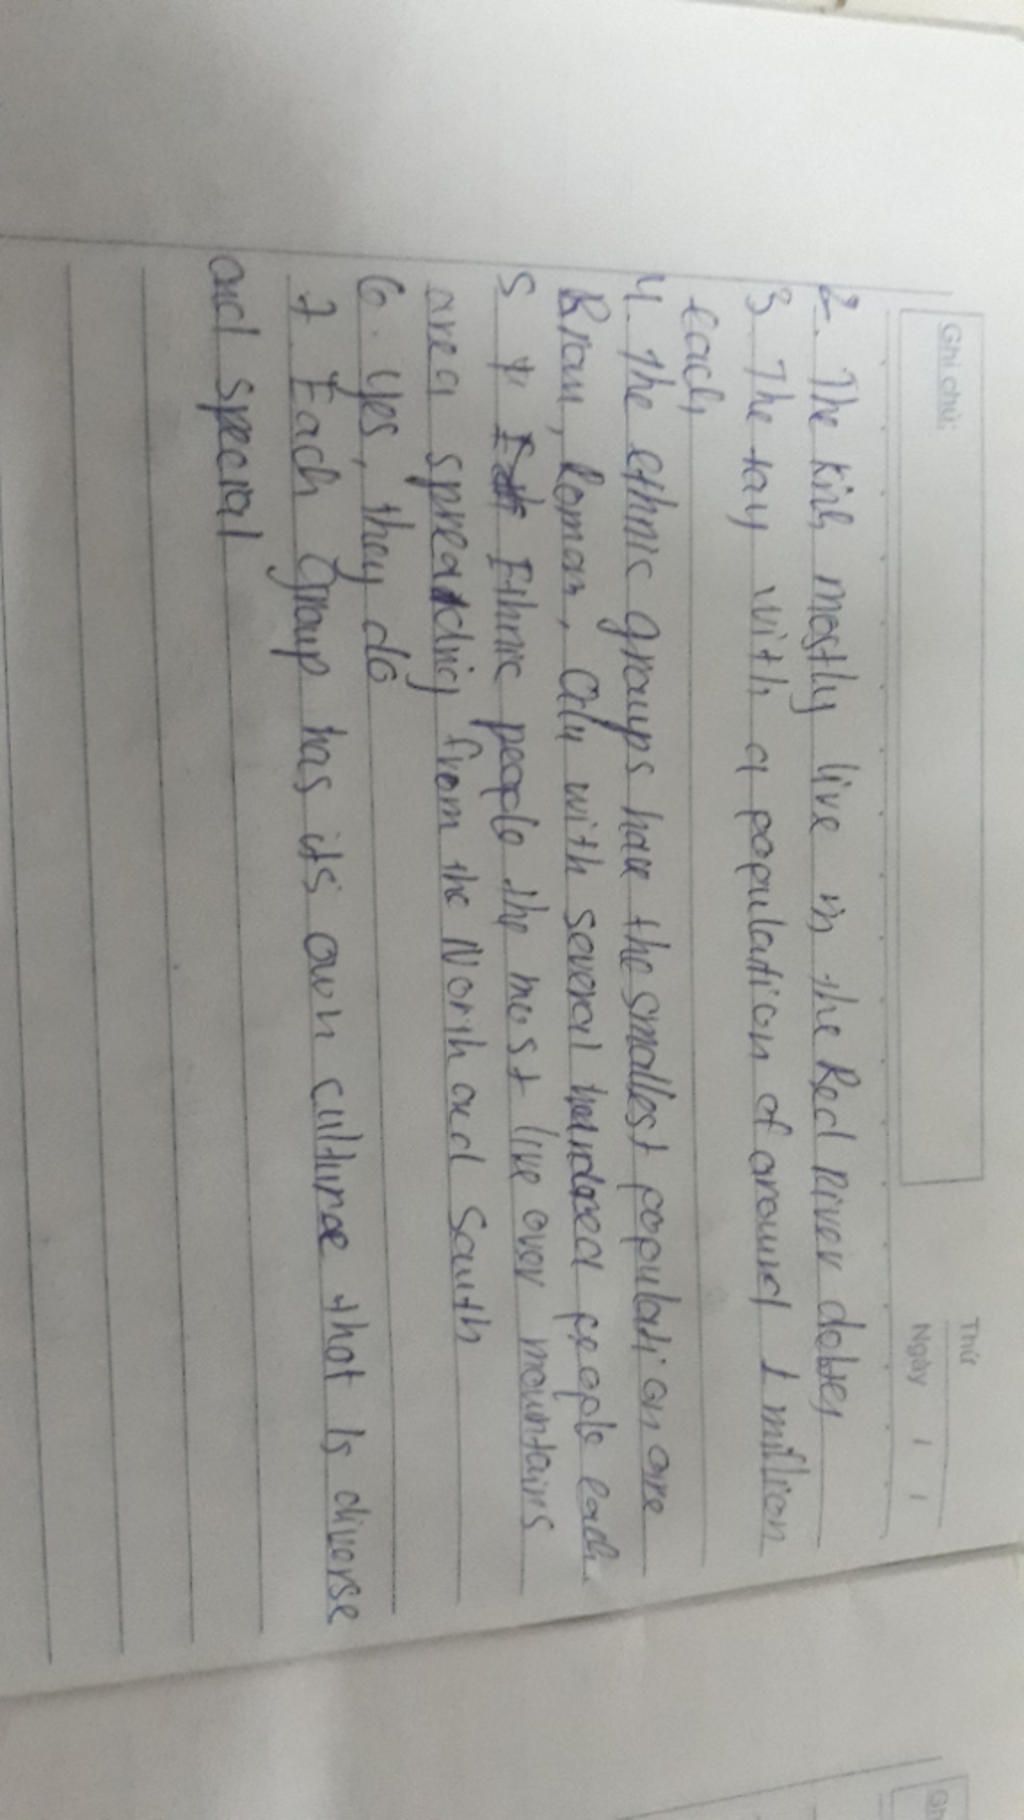 Ghi chú:
Thứ
Ngày / /
2. The Kinh mostly live in the Red River
3 The tay with a population of around 1 million
each,
4. the ethnic groups have the smallest population are
Brau, Romam, Odu with several people each
5 Ethnic people the most live over mountains
area spreading from the North and South
6. Yes, they do
7 Each Group has its own culture that is diverse
and special